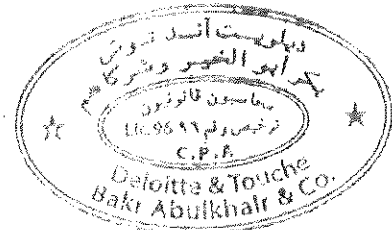 ديلويت آند توش
بكر أبو الخير وشركاهم
محاسبون قانونيون
ترخيص رقم ٩٦ Lic.96
C.P.A
Deloitte & Touche
Bakr Abulkhair & Co.